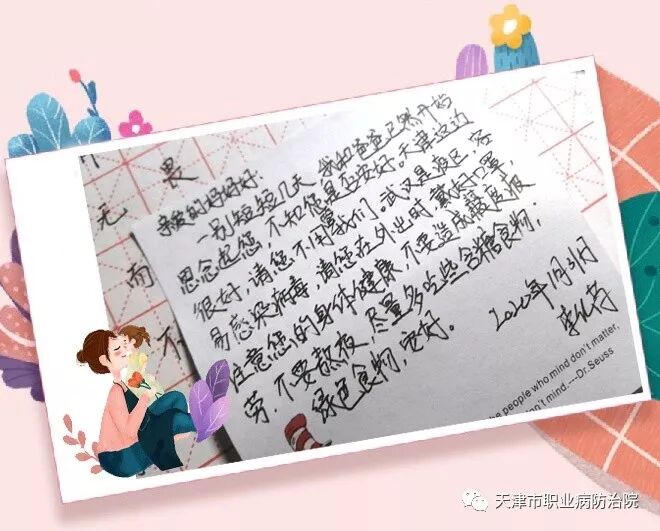 无 畏
而
不
亲爱的妈妈好:
一别短短几天,我和爸爸已然开始
思念起您,不知您是否安好。天津这边
很好,请您不用管我们。武汉是疫区,容
易感染病毒,请您在外出时戴好口罩,
注意您的身体健康,不要造成过度疲
劳,不要熬夜,尽量多吃些含糖食物,
绿色食物,安好。
2020年1月31日
李
he people who mind don't matter,
n't mind.---Dr Seuss
天津市职业病防治院